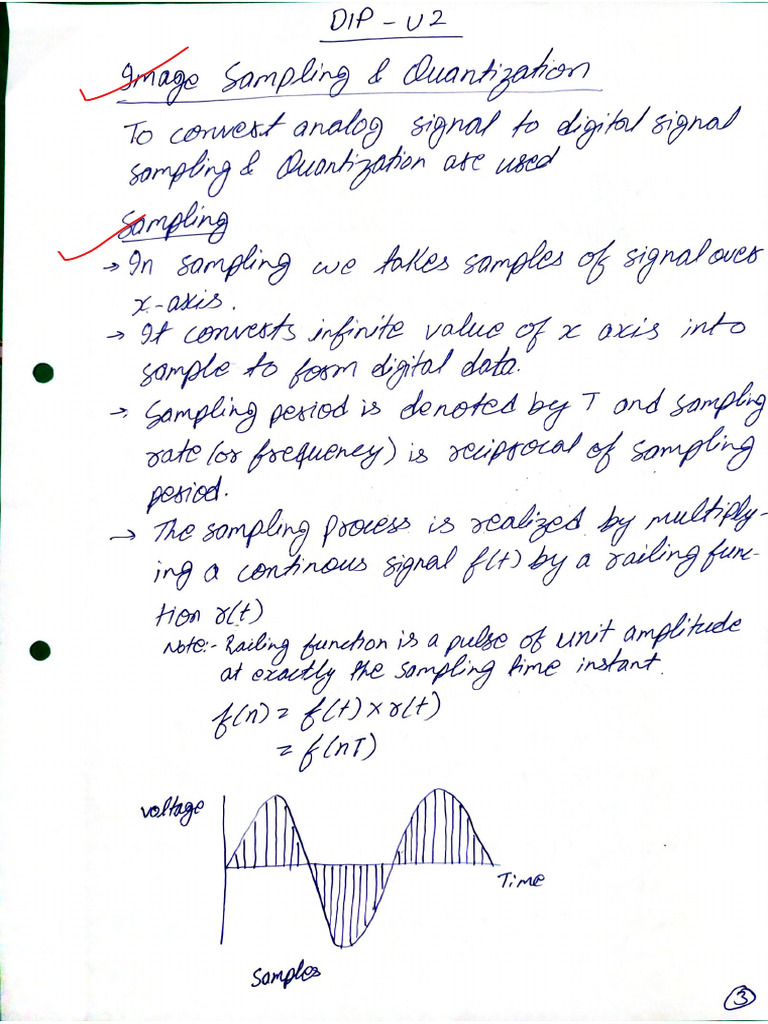 DIP - U2
Image Sampling & Quantization
To convert analog signal to digital signal
sampling & Quantization are used
Sampling
→ In sampling we takes samples of signal over
x-axis.
→ It converts infinite value of x axis into
sample to form digital data.
→ Sampling period is denoted by T and sampling
rate (or frequency) is reciprocal of sampling
period.
→ The sampling process is realized by multiply-
ing a continous signal f(t) by a railing func-
tion r(t)
Note:- Railing function is a pulse of unit amplitude
at exactly the sampling time instant.
f(n) = f(t) × r(t)
= f(nT)
Voltage
Time
Samples
3